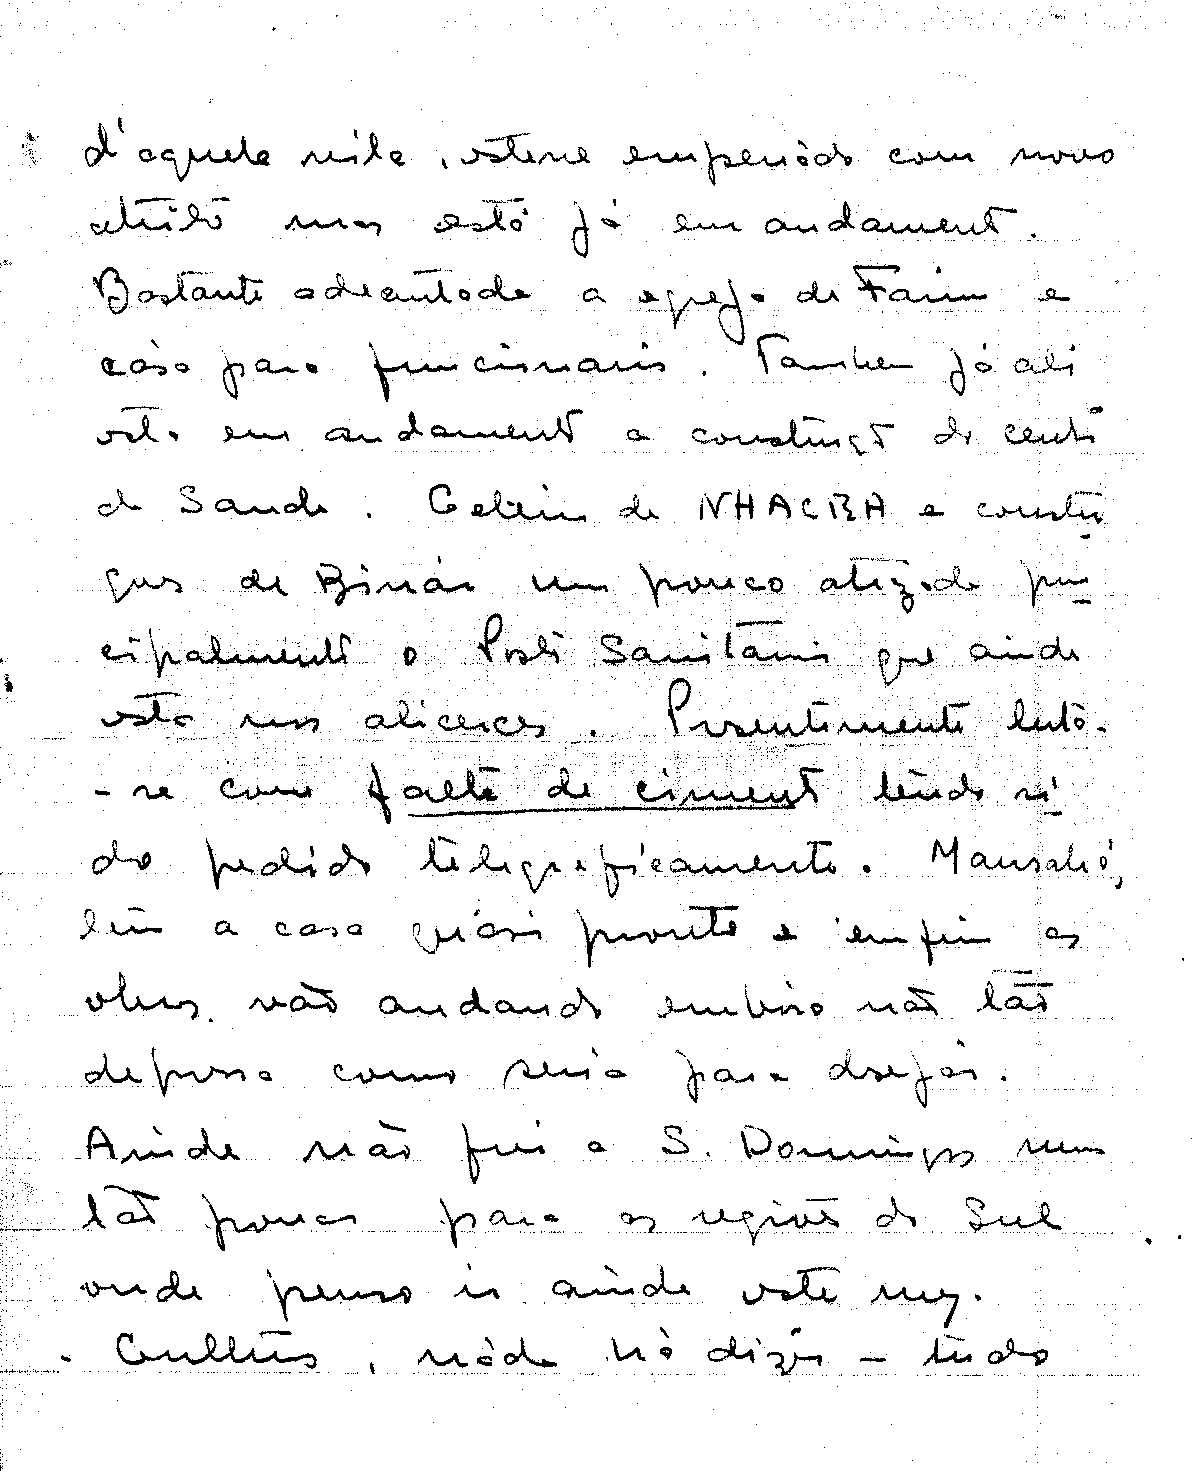 d'aquela vila, esteve emperrado com novo
atrito mas está já em andamento.
Bastante adeantada a egreja de Farim e
casa para funcionarios. Tambem já ali
está em andamento a construção do centro
de Saude. Celeiro de NHACRA e constru
ções de Bissau um pouco atrazada prin
cipalmente o Posto Sanitário que ainda
está nos alicerces. Presentemente luta-
-se com falta de cimento tendo si
do pedido telegraficamente. Mansabá,
tem a casa quási pronta e enfim as
obras vão andando embora não tão
depressa como seria para desejar.
Ainda não fui a S. Domingos nem
tão pouco para as regiões do Sul
onde penso ir ainda este mez.
Culturas, náda há dizer – tudo